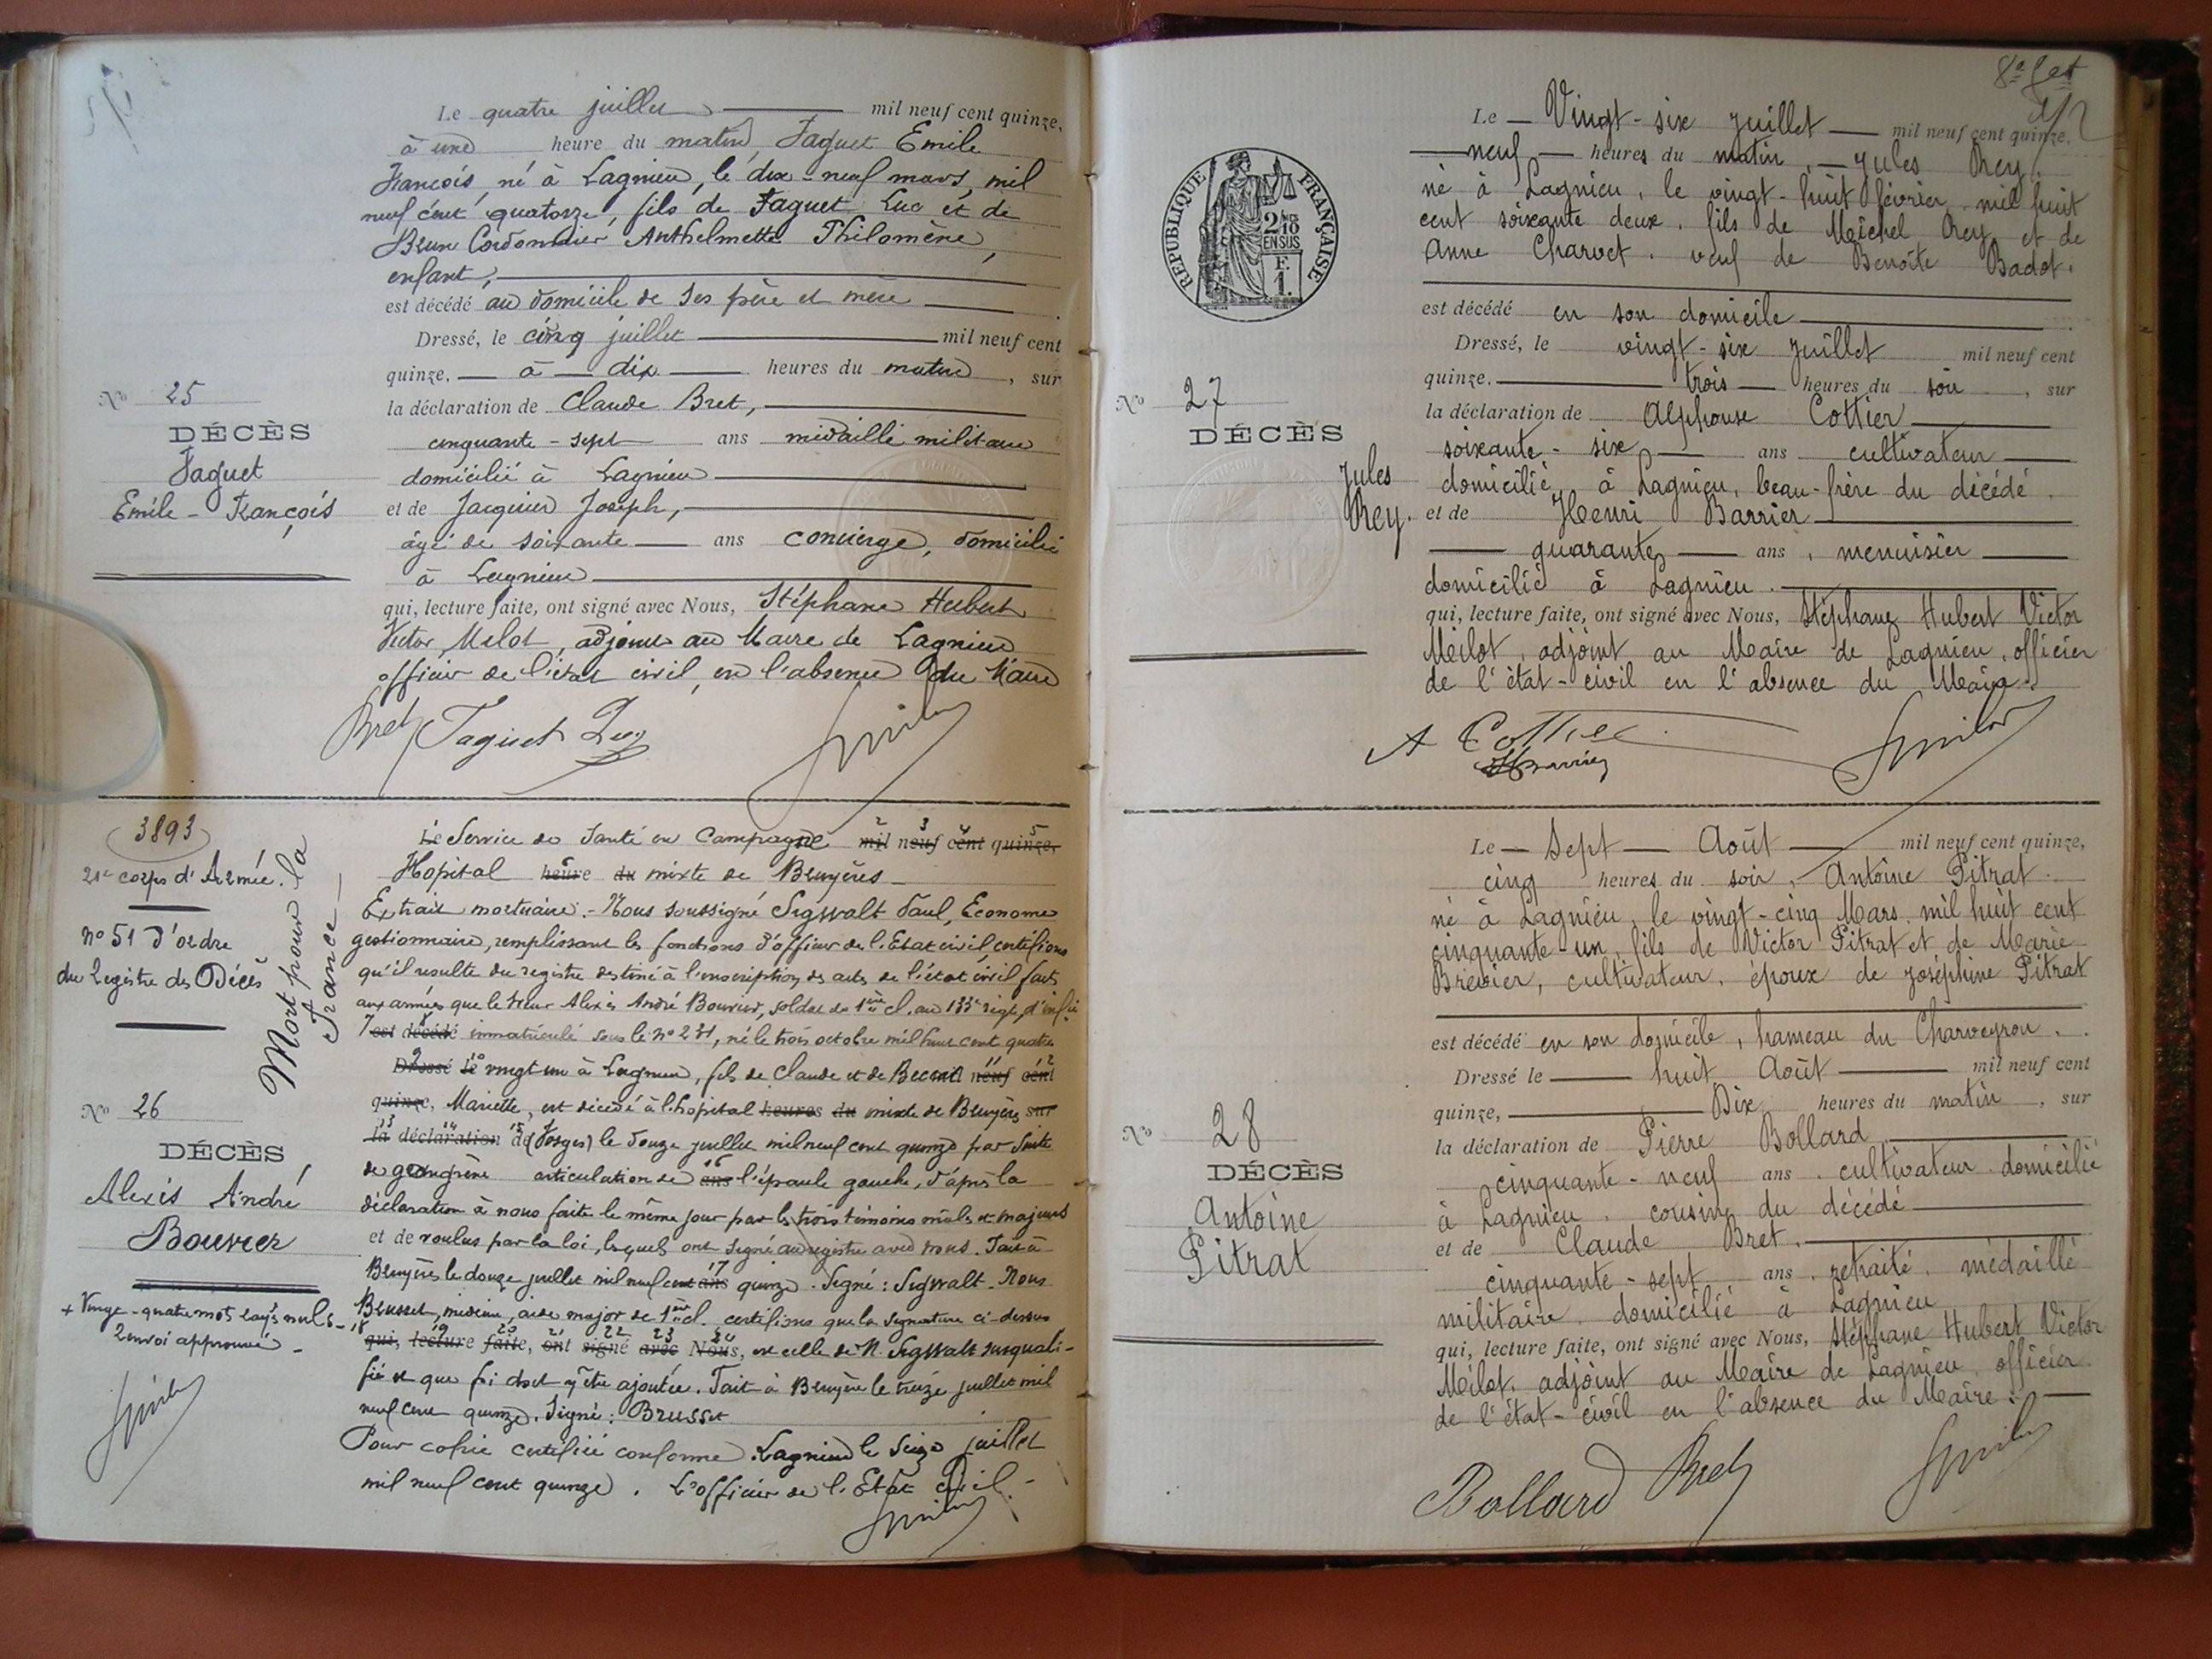 Le quatre juillet mil neuf cent quinze,
à une heure du matin, Faguet Emile
François, né à Lagnieu, le dix-neuf mars, mil
neuf cent quatorze, fils de Faguet Luc et de
Brun Cordonnier Anthelmette Philomène,
enfant,
est décédé au domicile de ses père et mère
Dressé, le cinq juillet mil neuf cent
quinze, à dix heures du matin, sur
la déclaration de Claude Bret,
cinquante-sept ans médaillé militaire
domicilié à Lagnieu
et de Jacquier Joseph,
âgé de soixante ans concierge, domicilié
à Lagnieu
qui, lecture faite, ont signé avec Nous, Stéphane Hubert
Victor Milot, adjoint au Maire de Lagnieu
officier de l'état civil, en l'absence du Maire
Bret Faguet Luc
No 25
DÉCÈS
Faguet
Emile-François
3893
21e corps d'Armée.
no 51 d'ordre
du Registre des Décès
Mort pour la
France
No 26
DÉCÈS
Alexis André
Bouvier
+ Vingt-quatre mots rayés nuls
Renvoi approuvé
Le Service de Santé en Campagne mil neuf cent quinze,
Hopital heure du mixte de Bruyères
Extrait mortuaire.- Nous soussigné Sigwalt Paul, Econome
gestionnaire, remplissant les fonctions d'officier de l'Etat civil, certifions
qu'il résulte du registre destiné à l'inscription des actes de l'état civil faits
aux armées que le sieur Alexis André Bouvier, soldat de 1ère cl. au 133e régt d'infie
est décédé immatriculé sous le no 231, né le trois octobre mil huit cent quatre
Dressé le vingt un à Lagnieu, fils de Claude et de neuf cent
quinze, Mariette, est décédé à l'hopital heures du mixte de Bruyères sur
la déclaration de (Vosges) le douze juillet mil neuf cent quinze par suite
de gangrène articulation de ans l'épaule gauche, d'après la
déclaration à nous faite le même jour par les trois témoins mâles et majeurs
et de voulus par la loi, lesquels ont signé au registre avec nous. Fait à
Bruyères le douze juillet mil neuf cent ans quinze. Signé: Sigwalt. Nous
Brusset, médecin, aide major de 1ère cl. certifions que la signature ci-dessus
qui, lecture faite, ont signé avec Nous, est celle de M. Sigwalt susquali-
fié et que foi doit y être ajoutée. Fait à Bruyères le treize juillet mil
neuf cent quinze. Signé: Brusset
Pour copie certifiée conforme. Lagnieu le seize juillet
mil neuf cent quinze. L'officier de l'Etat Civil.-
8e fet
RÉPUBLIQUE FRANÇAISE
2/10
EN SUS
F.
1.
Le Vingt-six juillet mil neuf cent quinze,
neuf heures du matin, Jules Rey,
né à Lagnieu, le vingt-huit février mil huit
cent soixante deux, fils de Michel Rey et de
Anne Charvet, veuf de Benoîte Badot.
est décédé en son domicile
Dressé, le vingt-six juillet mil neuf cent
quinze, trois heures du soir, sur
la déclaration de Alphonse Cottier
soixante-six ans cultivateur
domicilié à Lagnieu, beau-frère du décédé.
et de Henri Barrier
quarante ans, menuisier
domicilié à Lagnieu.
qui, lecture faite, ont signé avec Nous, Stéphane Hubert Victor
Milot, adjoint au Maire de Lagnieu, officier
de l'état-civil en l'absence du Maire.
A Cottier
No 27
DÉCÈS
Jules
Rey.
Le Sept Août mil neuf cent quinze,
cinq heures du soir, Antoine Pitrat
né à Lagnieu, le vingt-cinq Mars, mil huit cent
cinquante-un, fils de Victor Pitrat et de Marie
Brevier, cultivateur, époux de Joséphine Pitrat
est décédé en son domicile, hameau du Charveyron.
Dressé le huit Août mil neuf cent
quinze, Dix heures du matin, sur
la déclaration de Pierre Bollard
cinquante-neuf ans, cultivateur domicilié
à Lagnieu, cousin du décédé
et de Claude Bret.
cinquante-sept ans, retraité, médaillé
militaire domicilié à Lagnieu
qui, lecture faite, ont signé avec Nous, Stéphane Hubert Victor
Milot, adjoint au Maire de Lagnieu, officier
de l'état-civil en l'absence du Maire.
Bollard Bret
No 28
DÉCÈS
Antoine
Pitrat